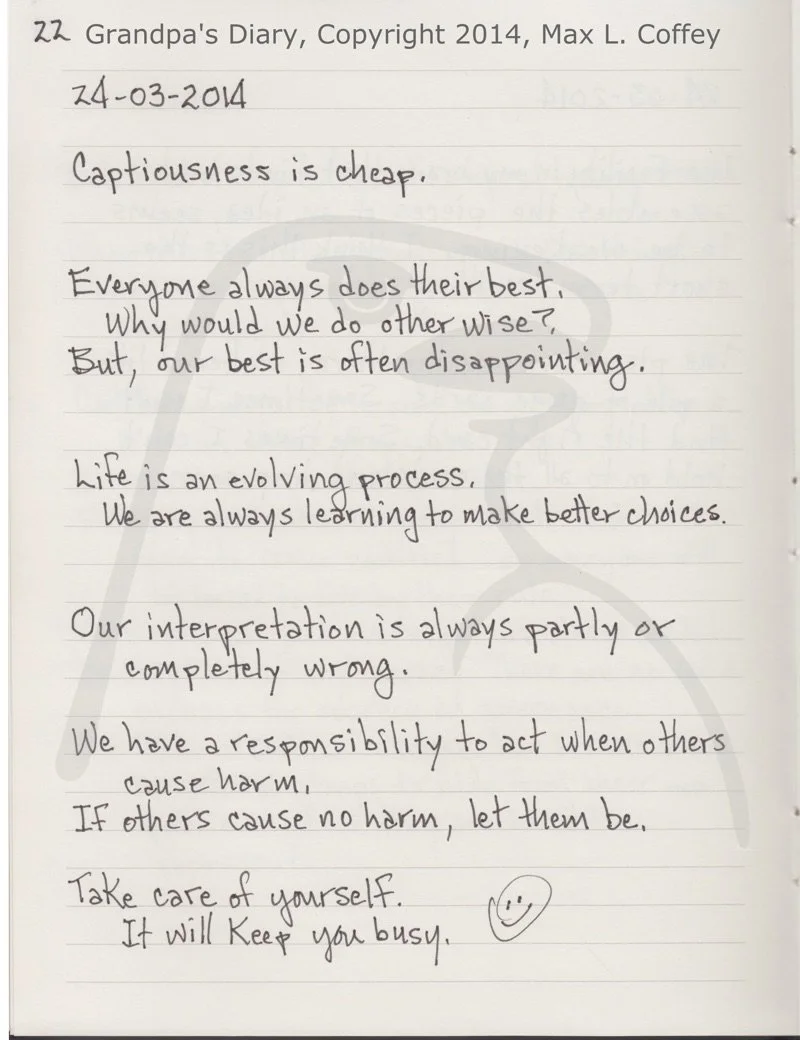 22 Grandpa's Diary, Copyright 2014, Max L. Coffey
24-03-2014
Captiousness is cheap.
Everyone always does their best.
Why would we do otherwise?
But, our best is often disappointing.
Life is an evolving process.
We are always learning to make better choices.
Our interpretation is always partly or
completely wrong.
We have a responsibility to act when others
cause harm.
If others cause no harm, let them be.
Take care of yourself.
It will keep you busy.